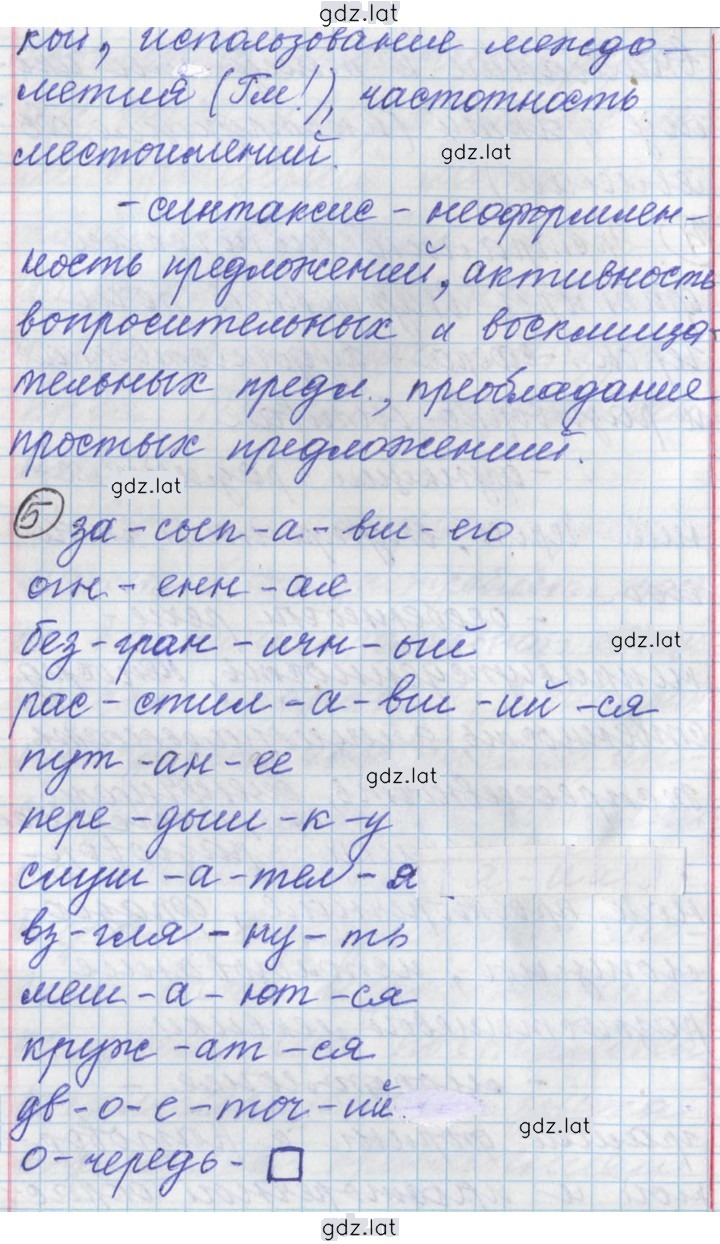 gdz.lat
кой, использование междо-
метия (Гм!), частотность
местоимений.
gdz.lat
- синтаксис - неоформлен-
ность предложений, активность
вопросительных и восклица-
тельных предл., преобладание
простых предложений.
gdz.lat
5 за - сып - а - вш - его
огн - енн - ая
без - гран - ичн - ый
gdz.lat
рас - стил - а - вш - ий - ся
пут - ан - ее
gdz.lat
пере - дыш - к - у
слуш - а - тел - я
вз - гля - ну - ть
меш - а - ют - ся
круж - ат - ся
дв - о - е - точ - ий
gdz.lat
о - чередь -
gdz.lat